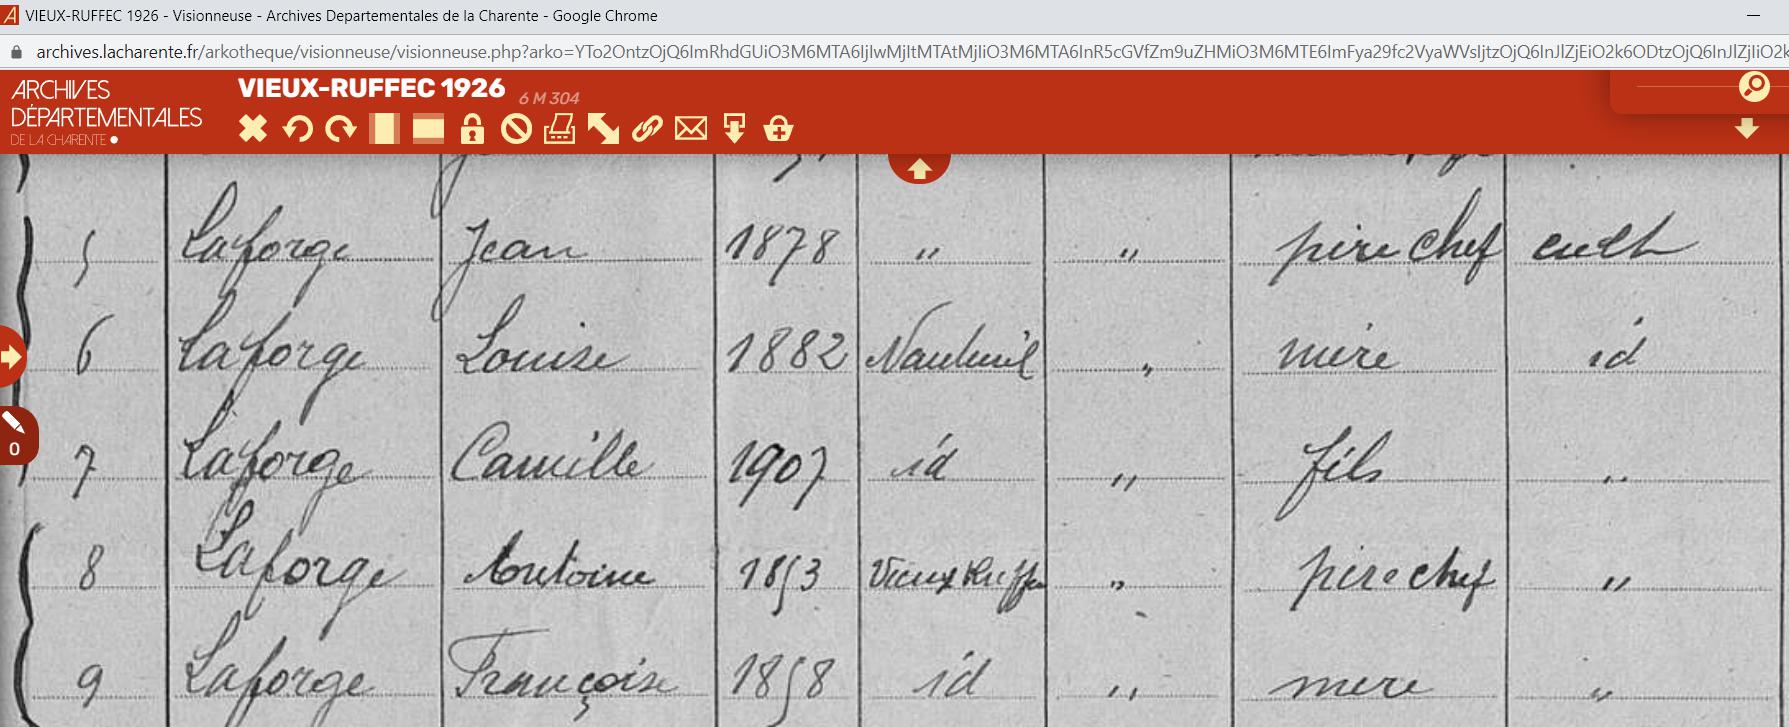 VIEUX-RUFFEC 1926 - Visionneuse - Archives Departementales de la Charente - Google Chrome
archives.lacharente.fr/arkotheque/visionneuse/visionneuse.php?arko=
ARCHIVES
DÉPARTEMENTALES
DE LA CHARENTE
VIEUX-RUFFEC 1926 6 M 304
5 Laforge Jean 1878 " " père chef cult
6 Laforge Louise 1882 Nanteuil " mère id
7 Laforge Camille 1907 id " fils "
0
8 Laforge Antoine 1853 Vieux Ruffec " père chef "
9 Laforge Françoise 1858 id " mere "